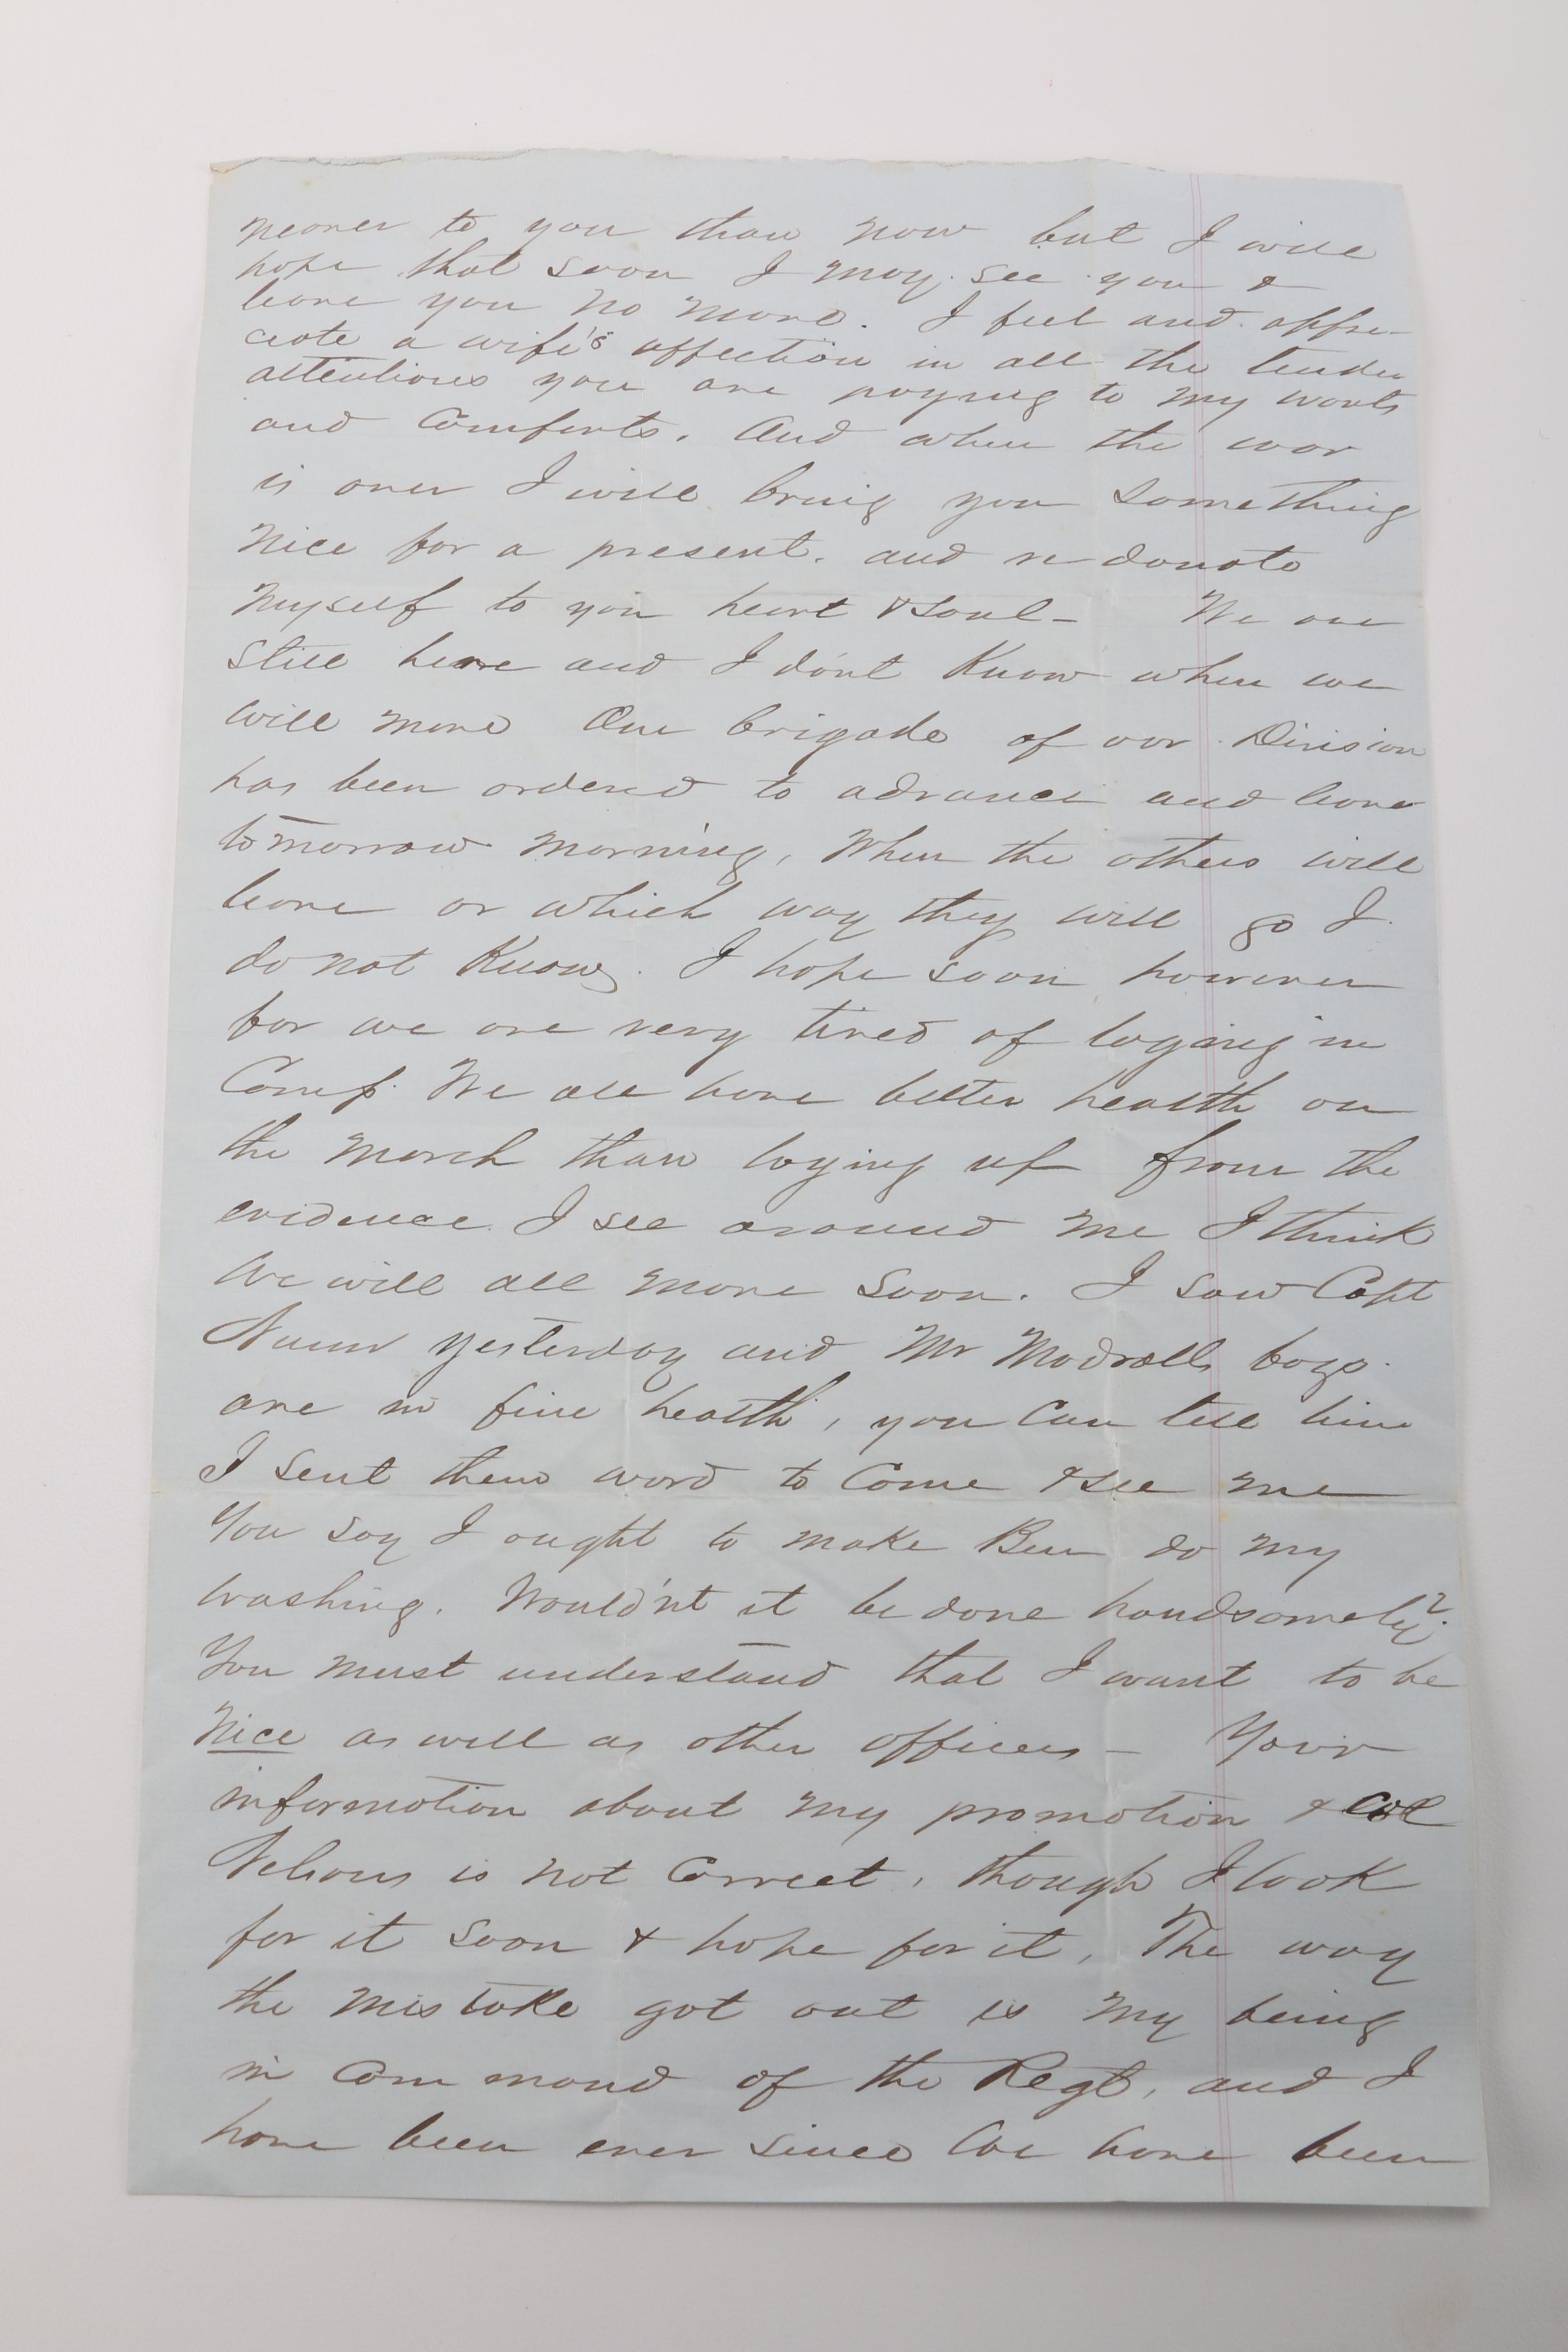 nearer to you than now but I will
hope that soon I may see you &
leave you no more. I feel and appre-
ciate a wife's affection in all the tender
attentions you are paying to my wants
and comforts. And when the war
is over I will bring you something
nice for a present. and re donate
myself to you heart & soul - We are
still here and I don't Know when we
will move One brigade of our Division
has been ordered to advance and leave
tomorrow morning, When the others will
leave or which way they will go I
do not Know. I hope soon however
for we are very tired of laying in
Camp. We all have better health on
the march than laying up from the
evidence I see around me I think
we will all move soon. I saw Capt
Nunn yesterday and Mr Modralls boys.
are in fine health, you can tell him
I sent them word to come & see me
You say I ought to make Ben do my
washing. Would'nt it be done handsomely?
You must understand that I want to be
nice as well as other officers - Your
information about my promotion & Col
Nelsons is not correct, though I look
for it soon & hope for it, The way
the mistake got out is my being
in command of the Regt, and I
have been ever since we have been